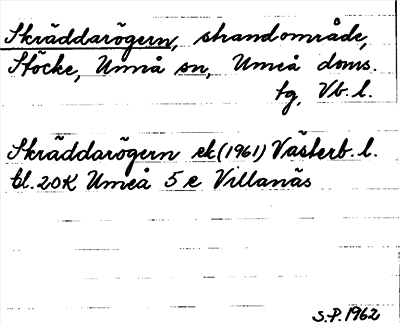 Skräddarögern, strandområde,
Stöcke, Umeå sn, Umeå doms.
tg, Vb. l.
Skräddarögern ek (1961) Västerb. l.
bl. 20K Umeå 5 e Villanäs
S.P. 1962